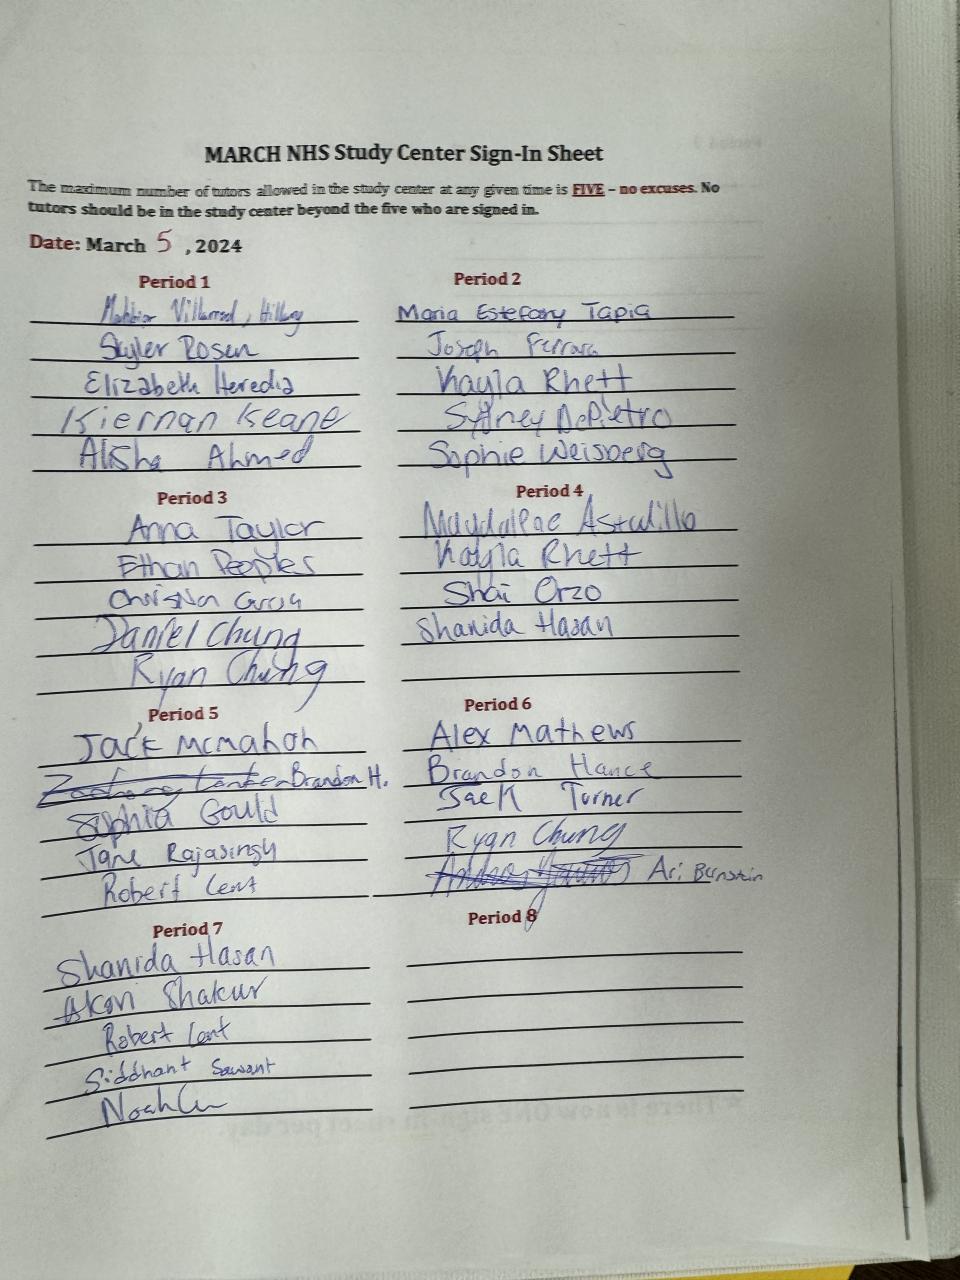 MARCH NHS Study Center Sign-In Sheet
The maximum number of tutors allowed in the study center at any given time is FIVE – no excuses. No
tutors should be in the study center beyond the five who are signed in.
Date: March 5, 2024
Period 1
Hillary
Skyler Rosen
Elizabeth Heredia
Kiernan Keane
Alisha Ahmed
Period 2
Maria Estefany Tapia
Joseph Ferrara
Kayla Rhett
Sydney DePietro
Sophie Weisberg
Period 3
Anna Taylor
Ethan Peoples
Daniel Chung
Ryan Chung
Period 4
Astudillo
Kayla Rhett
Shai Orzo
Shanida Hasan
Period 5
Jack McMahon
Brandon H.
Sophia Gould
Jane Rajasingh
Robert Lent
Period 6
Alex Mathews
Brandon Hance
Jack Turner
Ryan Chung
Ari Bernstein
Period 7
Shanida Hasan
Shakur
Robert Lent
Siddhant Sawant
Noah
Period 8